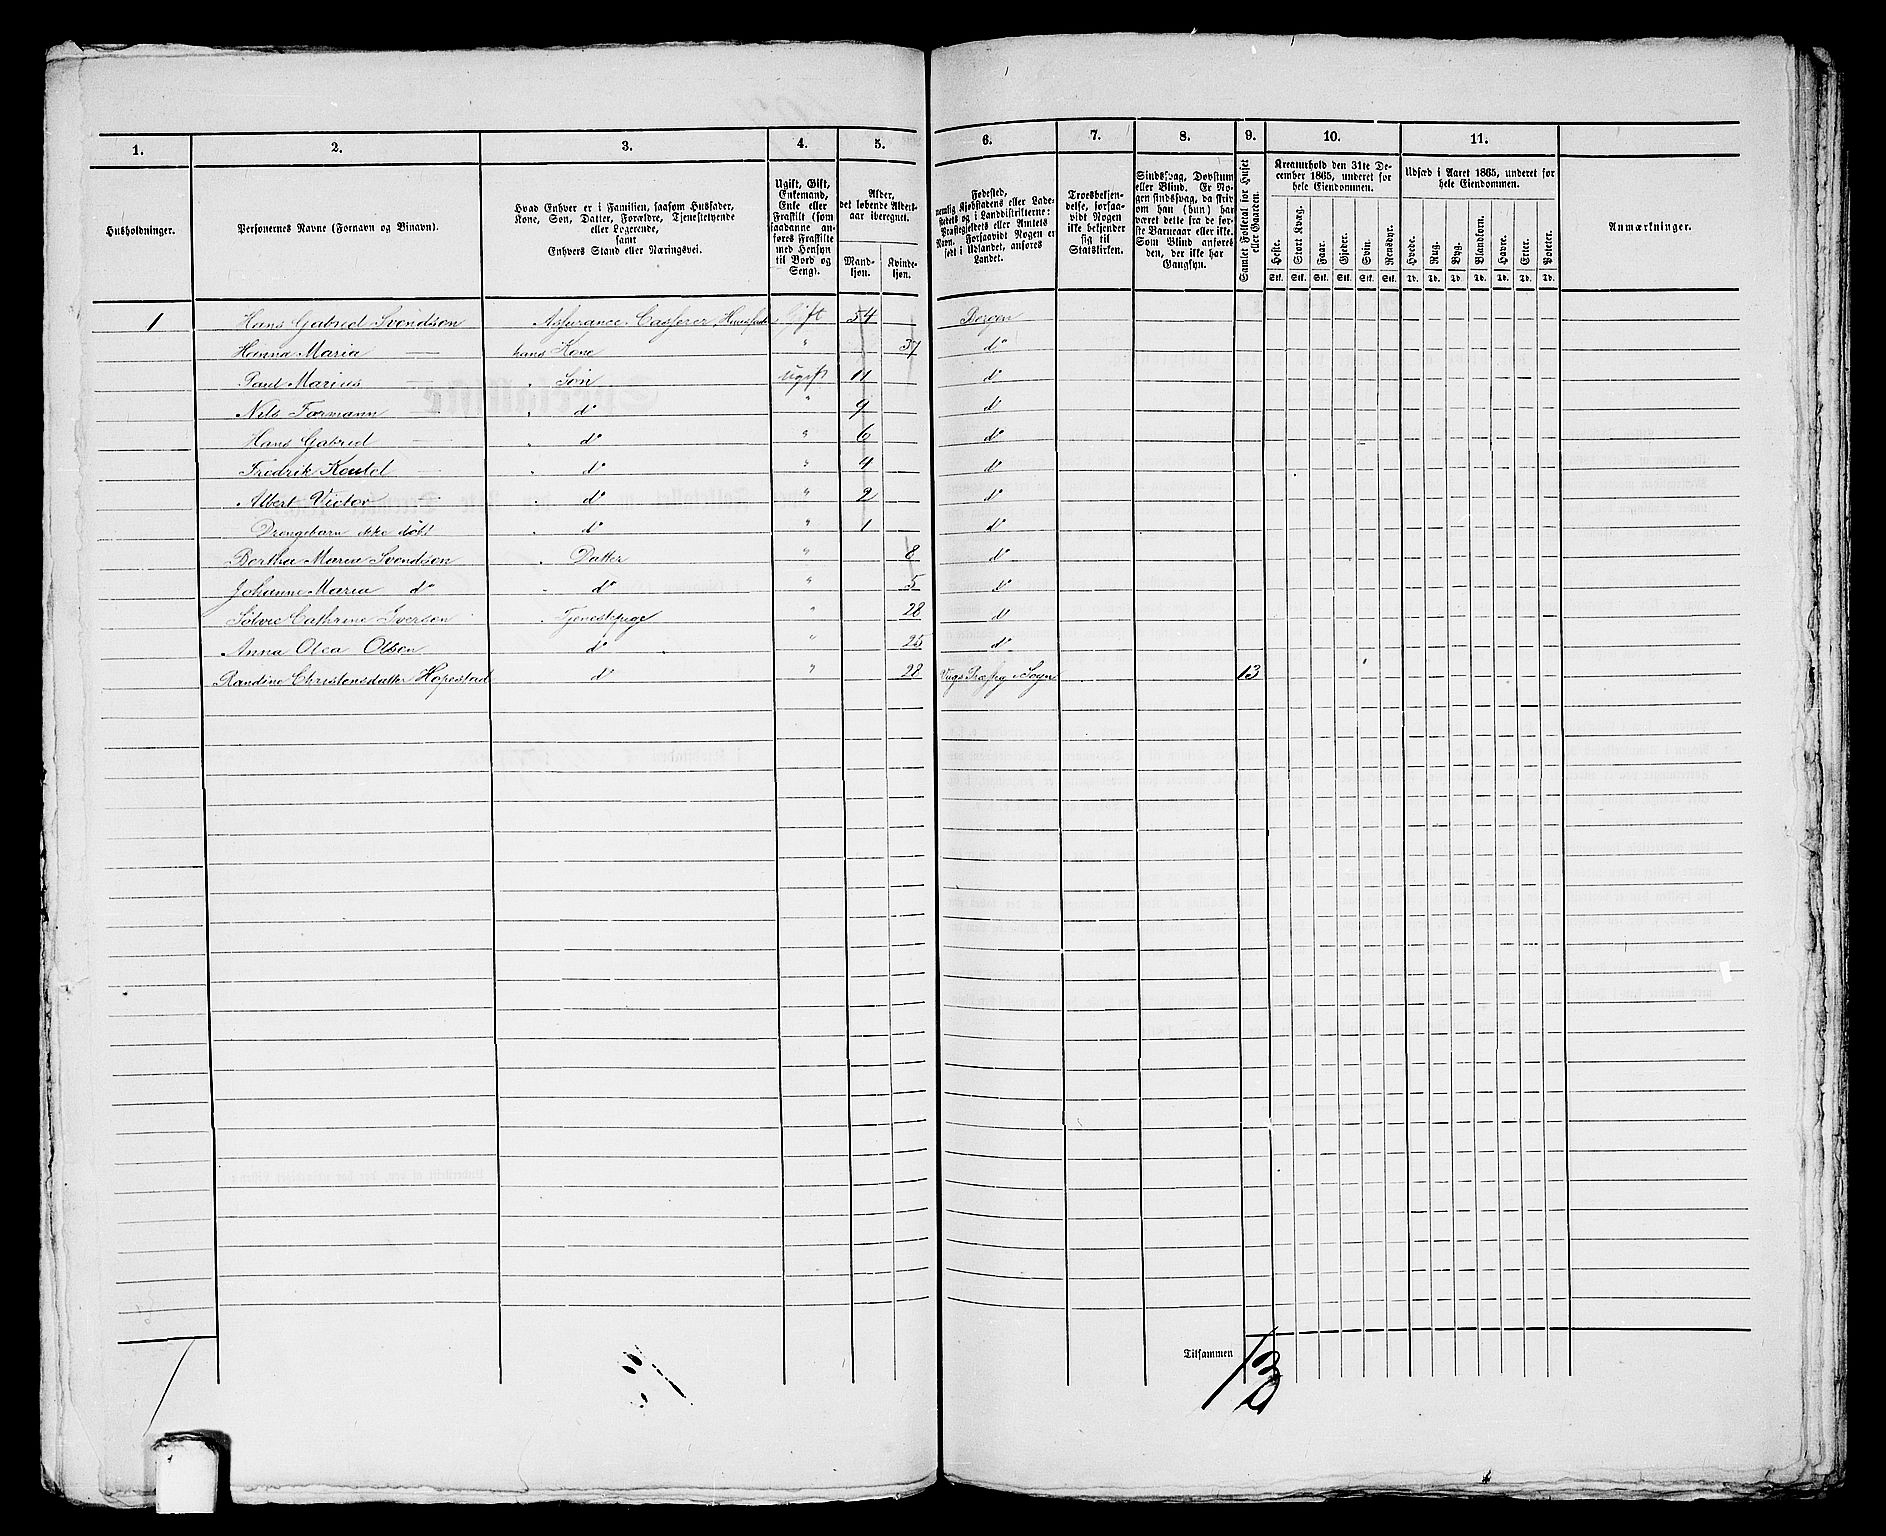 1. 2. 3. 4. 5. 6. 7. 8. 9. 10. 11.
Husholdninger.
Personernes Navne (Fornavn og Binavn).
Hvad Enhver er i Familien, saasom Husfader,
Kone, Søn, Datter, Forældre, Tjenestetyende
eller Logerende,
samt
Enhvers Stand eller Næringsvei.
Ugift, Gift,
Enkemand,
Enke eller
Fraskilt (som
saadanne an-
føres Fraskilte
med Hensyn
til Bord og
Seng).
Alder,
det løbende Alders-
aar iberegnet.
Mand-
kjøn.
Kvinde-
kjøn.
Fødested,
nemlig Kjøbstadens eller Lade-
stedets og i Landdistrikterne:
Præstegjeldets eller Amtets
Navn. Forsaavidt Nogen er
født i Udlandet, anføres
Landet.
Troesbekjen-
delse, forsaa-
vidt Nogen
ikke bekjender
sig til
Statskirken.
Sindssvag, Døvstum
eller Blind. Er No-
gen sindssvag, da skriv
om han (hun) har
været dette fra de før-
ste Barneaar eller ikke.
Som Blind anføres
den, der ikke har
Gangsyn.
Samlet Folketal for Huset
eller Gaarden.
Kreaturhold den 31te De-
cember 1865, underet for
hele Eiendommen.
Heste. Stort Kvæg. Faar. Gjeder. Svin. Rensdyr.
Stk. Stk. Stk. Stk. Stk. Stk.
Udsæd i Aaret 1865, underet for
hele Eiendommen.
Hvede. Rug. Byg. Blandkorn. Havre. Erter. Poteter.
Td. Td. Td. Td. Td. Td. Td.
Anmærkninger.
1 Hans Gabriel Svendsen Assurance-Casserer, Huusfader Gift 54 Bergen
Hanna Maria — hans Kone " 37 do
Paul Marius — " Søn Ugift 11 do
Nils Formann — " do " 9 do
Hans Gabriel — " do " 6 do
Fredrik — " do " 4 do
Albert Victor - " do " 2 do
Drengebarn ikke døbt " do " 1 do
Berthe Marie Svendsen " Datter " 8 do
Johanne Maria do " do " 5 do
Cathrine Iversen " Tjenestepige " 28 do
Anna Olea Olsen do " 25 do
Randine Christensdatter Hopestad do " 28 Sogn 13
Tilsammen 13